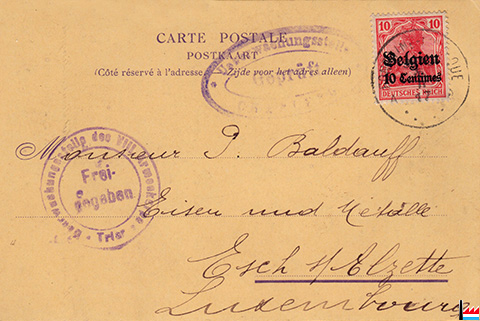 CARTE POSTALE
POSTKAART
(Côté réservé à l'adresse Zijde voor het adres alleen)
Geprüft
10 10
Belgien
10 Centimes
DEUTSCHES REICH
Überwachungsstelle des VIII. Armeekorps
Frei-
gegeben
Trier
Monsieur P. Baldauff
Eisen und Metalle
Esch s/Alzette
Luxembourg